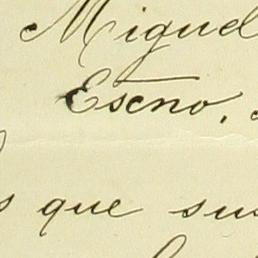 Miguel
Escño.
que sus